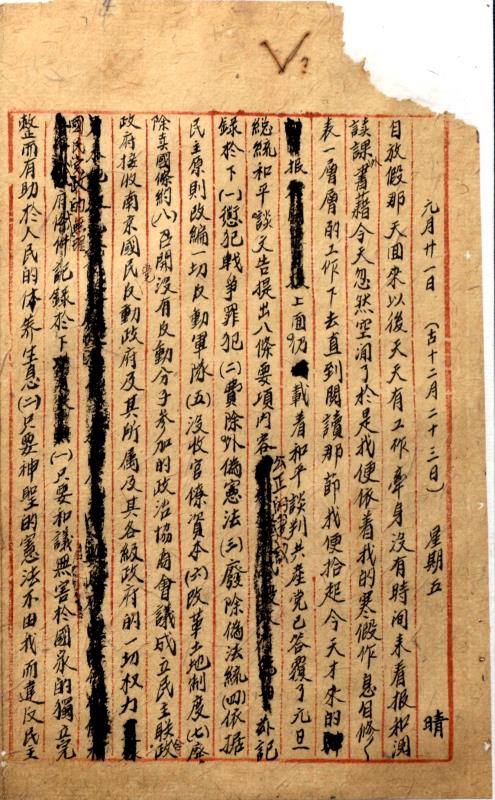 元月廿一日 (古十二月二十三日) 星期五 晴
自放假那天回來以後天天有工作牽身沒有時间来看报和阅
读課外書藉今天忽然空闲了於是我便依着我的寒假作息自修
表一層層的工作下去直到閱讀那節我便拾起今天才来的
报 上面仍載着和平談判共産党已答覆了元旦
総統和平談文告提出八條要項内容 公正的建议 兹記
錄於下(一)懲犯戰争罪犯(二)費除外偽憲法(三)廢除偽法統(四)依据
民主原則改編一切反動軍隊(五)沒收官僚資本(六)改革土地制度(七)廢
除卖國條約(八)召開沒有反動分子参加的政治協商會議成立民主联政
政府接收南京國民党反動政府及其所属及其各級政府的一切权力
國民党政府的
條件記録於下 (一)只要和議無害於國家的獨立完
整而有助於人民的休养生息(二)只要神聖的憲法不由我而違反民主